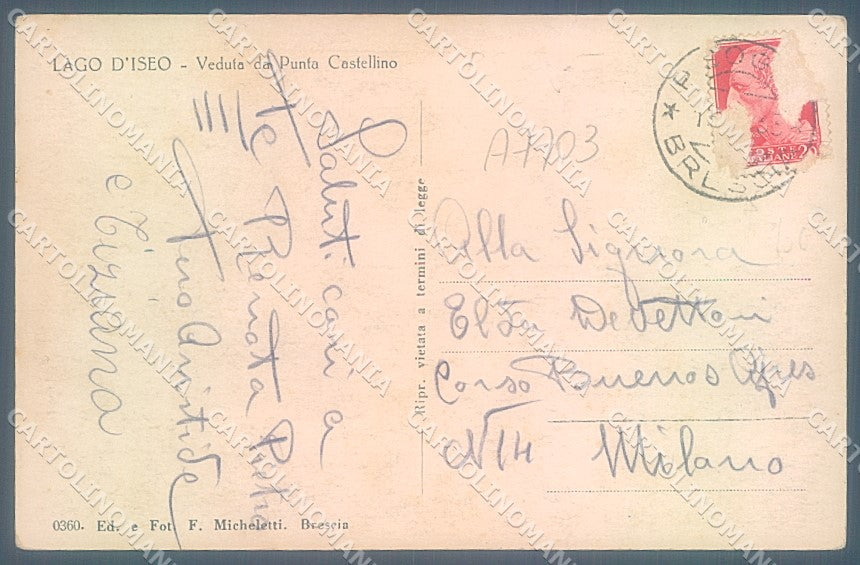 LAGO D'ISEO - Veduta da Punta Castellino
Saluti cari a
Te Renata Pietro
Tino Aristide
e Tiziana
Ripr. vietata a termini di legge
A7703
Alla Signora
Elsa Devettori
Corso Buenos Ayres
N 14 Milano
POSTE
ITALIANE 20
BRESCIA
0360. Ed. e Fot. F. Micheletti. Brescia
CARTOLINOMANIA